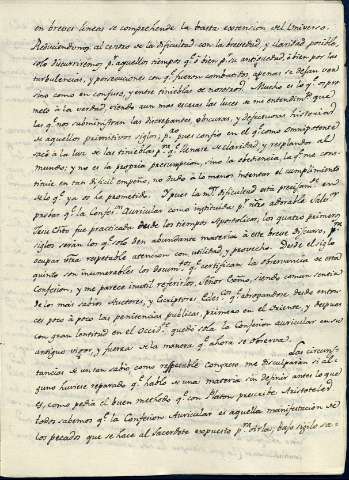 en breves lineas se comprehende la basta extension del Universo.
Reduciendome al centro de la dificultad con la brevedad, y claridad posible,
solo discurriremos pr. aquellos tiempos qe. ò bien pr. su antiguedad, ò bien por las
turbulencias, y persecuciones con qe. fueron combatidos, apenas se dejan ver
sino como en confuso, y entre tinieblas de nosotros. Mucho es lo qe.
meto à la verdad, siendo aun mas escasas las luces de mi entendimto. que
las qe. nos subministran las discrepantes, obscuras, y defectuosas historias
de aquellos primitivos siglos; pero pues confio en el qe. como omnipotente
sacò à la luz de las tinieblas, pa. qe. llenase de claridad, y resplandor al
mundo; y no es la propria presumpcion, sino la obediencia, la qe. me cons-
tituie en tan dificil empeño, no dudo à lo menos intentar el cumplimiento
de lo qe. ya os he prometido. Y pues la mr. dificultad està precisamte. en
provar qe. la Confesn. Auricular como instituida pr. nro. adorable Salvor.
Jesu Christo fue practicada desde los tiempos Apostolicos, los quatro primeros
siglos seràn los qe. solo den abundante materia à este breve discurso, pa.
ocupar vtra. respetable atencion con utilidad, y provecho. Desde el siglo
quinto son innumerables los documtos. qe. certifican la observancia de esta
Confesion, y me parece inutil referirlos. Señor como, siendo comun sentir
de los mas sabios Auctores, y Escriptores Ecles.cos qe. abrogandose desde enton-
ces poco à poco las penitencias publicas, primero en el Oriente, y despues
con gran lentitud en el Occidte. quedò sola la Confesion auricular en su
antiguo vigor, y fuerza de la manera qe. ahora se observa.
Las circuns-
tancias de un tan sabio, como respetable congreso me disculparàn si al-
guno huviere reparado qe. hablo de una materia sin definir antes lo que
es, como pedia el buen methodo qe. con Platon prescribe Aristoteles
todos sabemos qe. la Confesion Auricular es aquella manifestacion de
los pecados que se hace al Sacerdote expuesto pa. oirla; bajo sigilo sa-